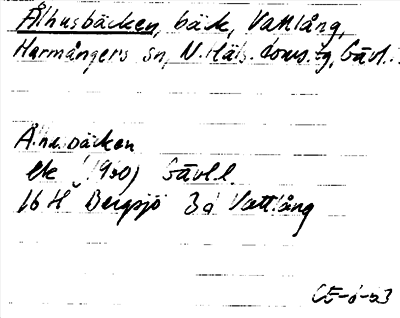 Ålhusbäcken, bäck, Vattlång,
Harmångers sn, N. Häls. doms. tg, Gävl.
bäcken
ek (1950) Gävl.l.
16 H Bergsjö 3d Vattlång